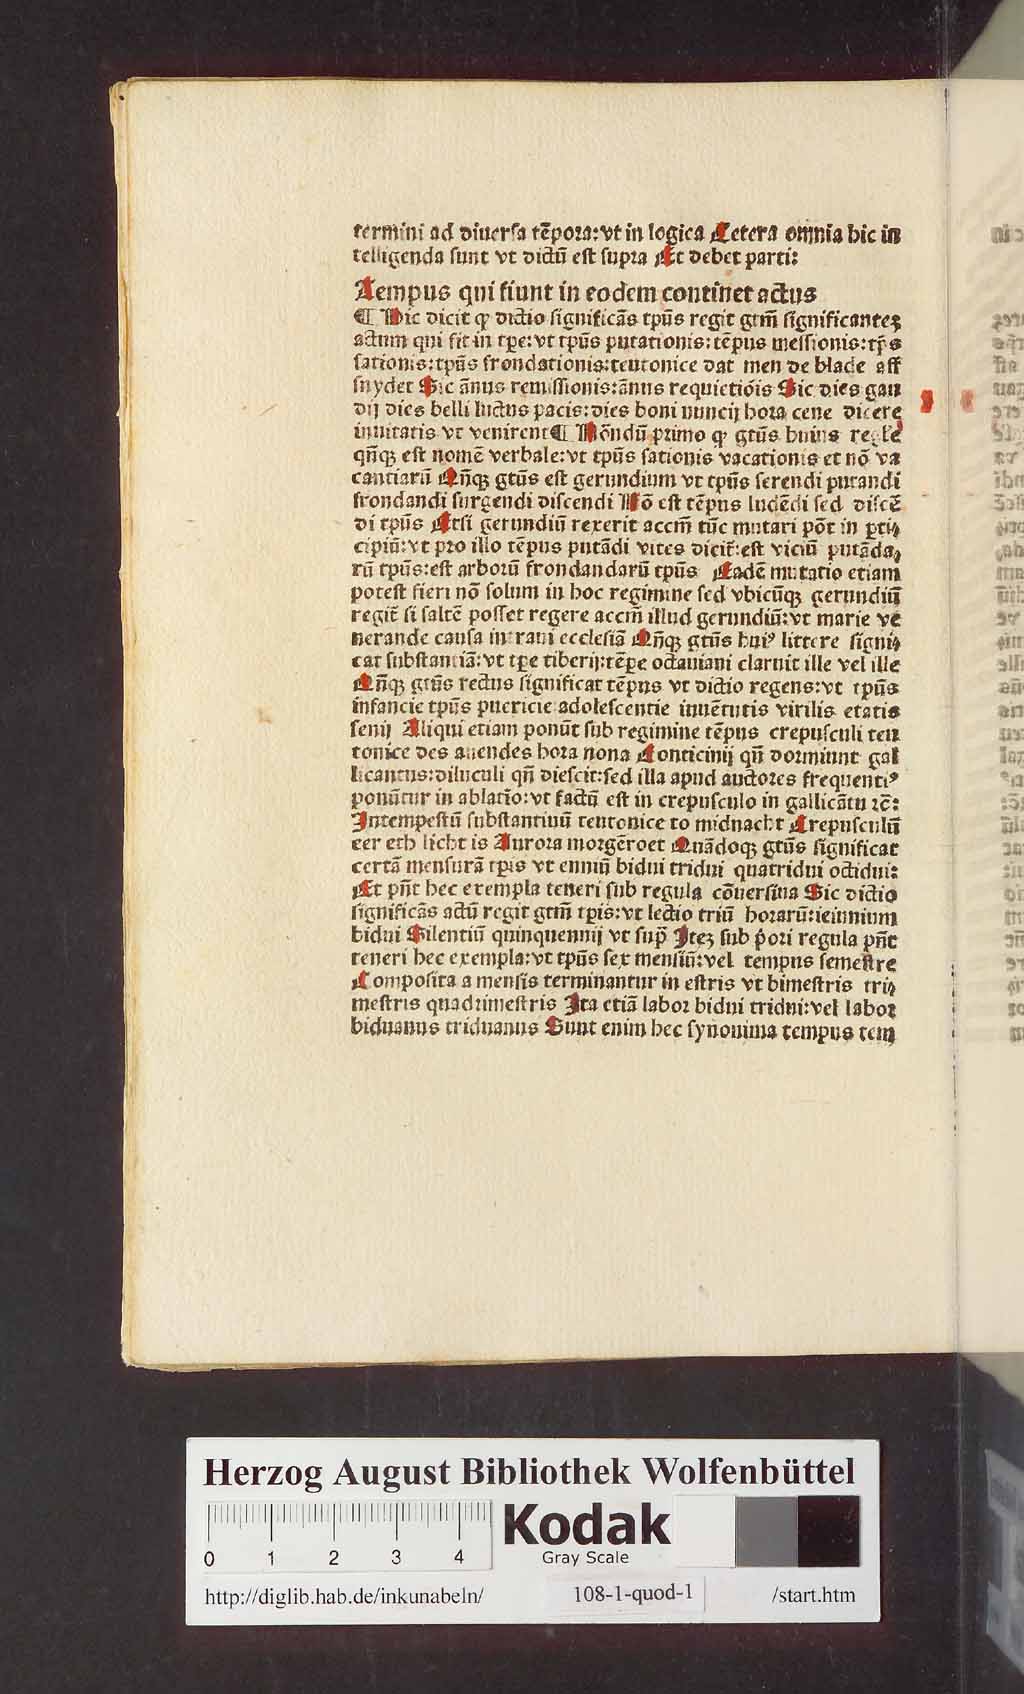 termini ad diuersa tēpora: vt in logica Cetera omnia hic in
telligenda sunt vt dictū est supra Et debet parti:
Tempus qui fiunt in eodem continet actus
¶ Hic dicit ꝙ dictio significās tpūs regit gtm̄ significantez
actum qui fit in tꝑe: vt tpūs putationis: tēpus messionis: tꝑs
sationis: tpūs frondationis: teutonice dat men de blade aff
snydet Sic ānus remissionis: ānus requietiōis Sic dies gau
dij dies belli luctus pacis: dies boni nuncij hora cene dicere
inuitatis vt venirent ¶ Nōndū primo ꝙ gtūs huius regl̄e
qn̄qꝫ est nomē verbale: vt tpūs sationis vacationis et nō va
cantiarū Qn̄qꝫ gtūs est gerundium vt tpūs serendi putandi
frondandi surgendi discendi Nō est tēpus ludēdi sed discē
di tpūs Etsi gerundiū rexerit accm̄ tūc mutari pōt in ꝑti⸗
cipiū: vt pro illo tēpus putādi vites dicit̄: est viciū putāda⸗
rū tpūs: est arborū frondandarū tpūs Eadē mutatio etiam
potest fieri nō solum in hoc regimine sed vbicūqꝫ gerundiū
regit̄ si saltē posset regere accm̄ illud gerundiū: vt marie ve
nerande causa intraui ecclesiā Qn̄qꝫ gtūs huiꝰ littere signi⸗
cat substantiā: vt tꝑe tiberij: tēꝑe octauiani claruit ille vel ille
Qn̄qꝫ gtūs rectus significat tēpus vt dictio regens: vt tpūs
infancie tpūs puericie adolescentie iuuētutis virilis etatis
senij Aliqui etiam ponūt sub regimine tēpus crepusculi teu
tonice des auendes hora nona Conticinij qn̄ dormiunt gal
licantus: diluculi qn̄ diescit: sed illa apud auctores frequentiꝰ
ponūtur in ablatīo: vt factū est in crepusculo in gallicātu ꝛc̄:
Intempestū substantiuū teutonice to midnacht Crepusculū
eer eth licht is Aurora morgēroet Quādoqꝫ gtūs significat
certā mensurā tꝑis vt enniū bidui tridui quatridui octidui:
Et pn̄t hec exempla teneri sub regula cōuersiua Sic dictio
significās actū regit gtm̄ tꝑis: vt lectio triū horarū: ieiunium
bidui Silentiū quinquennij vt sup̄ Itez sub p̄ori regula pn̄t
teneri hec exempla: vt tpūs sex mensiū: vel tempus semestre
Composita a mensis terminantur in estris vt bimestris tri⸗
mestris quadrimestris Ita etiā labor bidui tridui: vel labor
biduanus triduanus Sunt enim hec synonima tempus tem
Herzog August Bibliothek Wolfenbüttel
0 1 2 3 4
Kodak
Gray Scale
http://diglib.hab.de/inkunabeln/ 108-1-quod-1 /start.htm